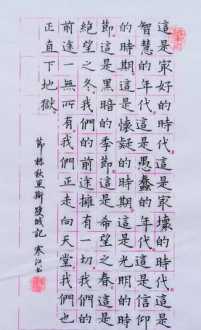 這是最好的時代這是最壞的時代這是
智慧的年代這是愚蠢的年代這是信仰
的時期這是懷疑的時期這是光明的時
節這是黑暗的季節這是希望之春這是
絕望之冬我們的前途擁有一切我們的
前途一無所有我們正走向天堂我們也
正直下地獄
節錄狄更斯雙城記 寒江書